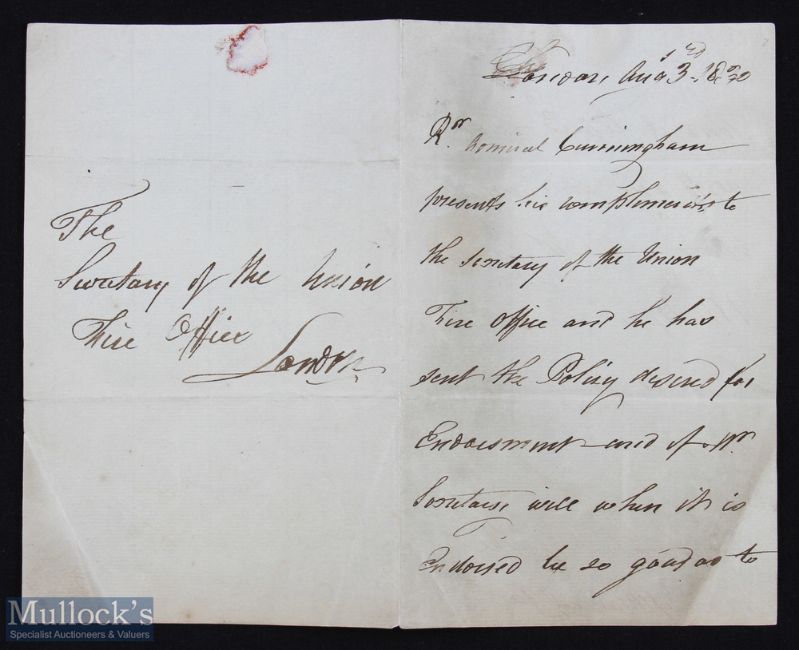 The
Secretary of the Union
Fire Office
London
London, Aug 3rd 1820
Rr. Admiral Cunningham
presents his compliments to
the secretary of the Union
Fire Office and he has
sent the Policy desired for
Endorsment and if Mr
Secretary will when it is
Endorsed be so good as to
Mullock's
Specialist Auctioneers & Valuers